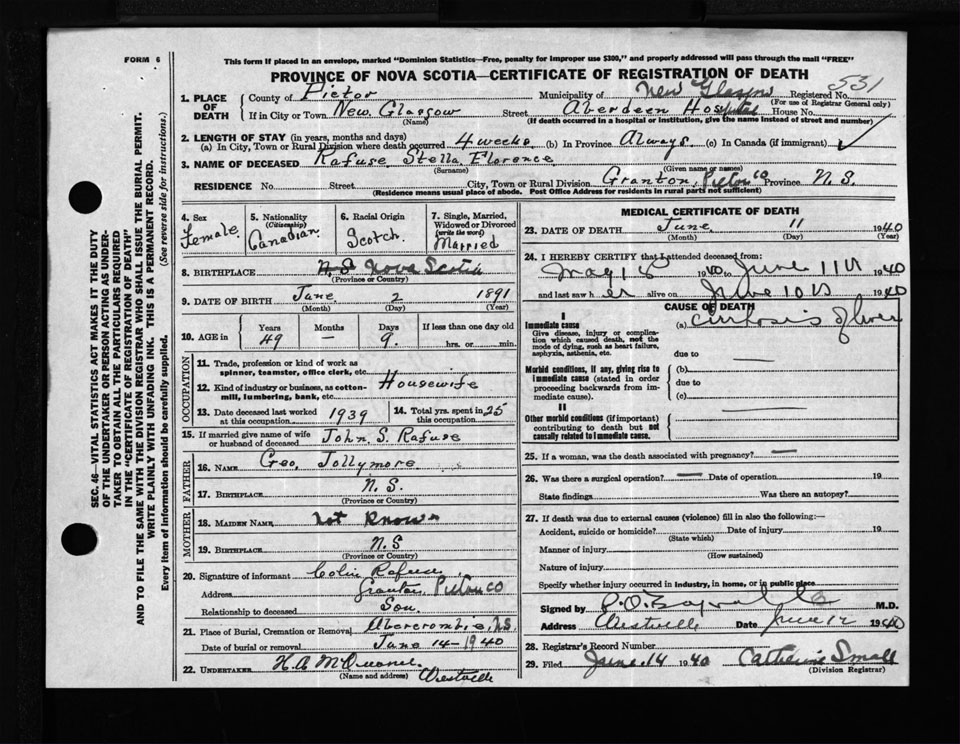 FORM 6
This form if placed in an envelope, marked "Dominion Statistics—Free, penalty for improper use $300," and properly addressed will pass through the mail "FREE"
PROVINCE OF NOVA SCOTIA—CERTIFICATE OF REGISTRATION OF DEATH
531
1. PLACE OF DEATH
County of Pictou Municipality of New Glasgow Registered No.
(For use of Registrar General only)
If in City or Town New Glasgow Street Aberdeen Hospital House No.
(Name) (If death occurred in a hospital or institution, give the name instead of street and number)
2. LENGTH OF STAY (in years, months and days)
(a) In City, Town or Rural Division where death occurred 4 weeks (b) In Province Always (c) In Canada (if immigrant)
3. NAME OF DECEASED Rafuse Stella Florence
(Surname) (Given name or names)
RESIDENCE No. Street City, Town or Rural Division Granton, Pictou Co Province N.S.
(Residence means usual place of abode. Post Office Address for residents in rural parts not sufficient)
4. Sex Female
5. Nationality (Citizenship) Canadian
6. Racial Origin Scotch
7. Single, Married, Widowed or Divorced (write the word) Married
8. BIRTHPLACE N.S Nova Scotia
(Province or Country)
9. DATE OF BIRTH June 2 1891
(Month) (Day) (Year)
10. AGE in Years Months Days If less than one day old
49 — 9. hrs. or min.
OCCUPATION
11. Trade, profession or kind of work as spinner, teamster, office clerk, etc.
Housewife
12. Kind of industry or business, as cotton-mill, lumbering, bank, etc.
13. Date deceased last worked at this occupation 1939
14. Total yrs. spent in this occupation 25
15. If married give name of wife or husband of deceased John S. Rafuse
FATHER
16. NAME Geo. Jollymore
17. BIRTHPLACE N.S.
(Province or Country)
MOTHER
18. MAIDEN NAME not known
19. BIRTHPLACE N.S
(Province or Country)
20. Signature of informant Colin Rafuse
Address Granton, Pictou Co
Relationship to deceased Son.
21. Place of Burial, Cremation or Removal Abercrombie, N.S.
Date of burial or removal June 14—1940
22. UNDERTAKER H.A.
(Name and address) Westville
MEDICAL CERTIFICATE OF DEATH
23. DATE OF DEATH June 11 1940
(Month) (Day) (Year)
24. I HEREBY CERTIFY that I attended deceased from:
May 1940 to June 11th 1940
and last saw her alive on June 10th 1940
CAUSE OF DEATH
I
Immediate cause
Give disease, injury or complication which caused death, not the mode of dying, such as heart failure, asphyxia, asthenia, etc.
(a) Cirrhosis of liver
due to —
Morbid conditions, if any, giving rise to immediate cause (stated in order proceeding backwards from immediate cause).
(b)
due to
(c)
II
Other morbid conditions (if important) contributing to death but not causally related to immediate cause.
25. If a woman, was the death associated with pregnancy? —
26. Was there a surgical operation? — Date of operation 19
State findings Was there an autopsy?
27. If death was due to external causes (violence) fill in also the following:—
Accident, suicide or homicide? Date of injury 19
(State which)
Manner of injury
(How sustained)
Nature of injury
Specify whether injury occurred in industry, in home, or in public place
Signed by M.D.
Address Westville Date June 12 1940
28. Registrar's Record Number
29. Filed June 14 1940 Catherine Small
(Division Registrar)
SEC. 46—VITAL STATISTICS ACT MAKES IT THE DUTY
OF THE UNDERTAKER OR PERSON ACTING AS UNDER-
TAKER TO OBTAIN ALL THE PARTICULARS REQUIRED
IN THE "CERTIFICATE OF REGISTRATION OF DEATH"
AND TO FILE THE SAME WITH THE DIVISION REGISTRAR WHO SHALL ISSUE THE BURIAL PERMIT.
WRITE PLAINLY WITH UNFADING INK. THIS IS A PERMANENT RECORD.
Every item of information should be carefully supplied. (See reverse side for instructions.)